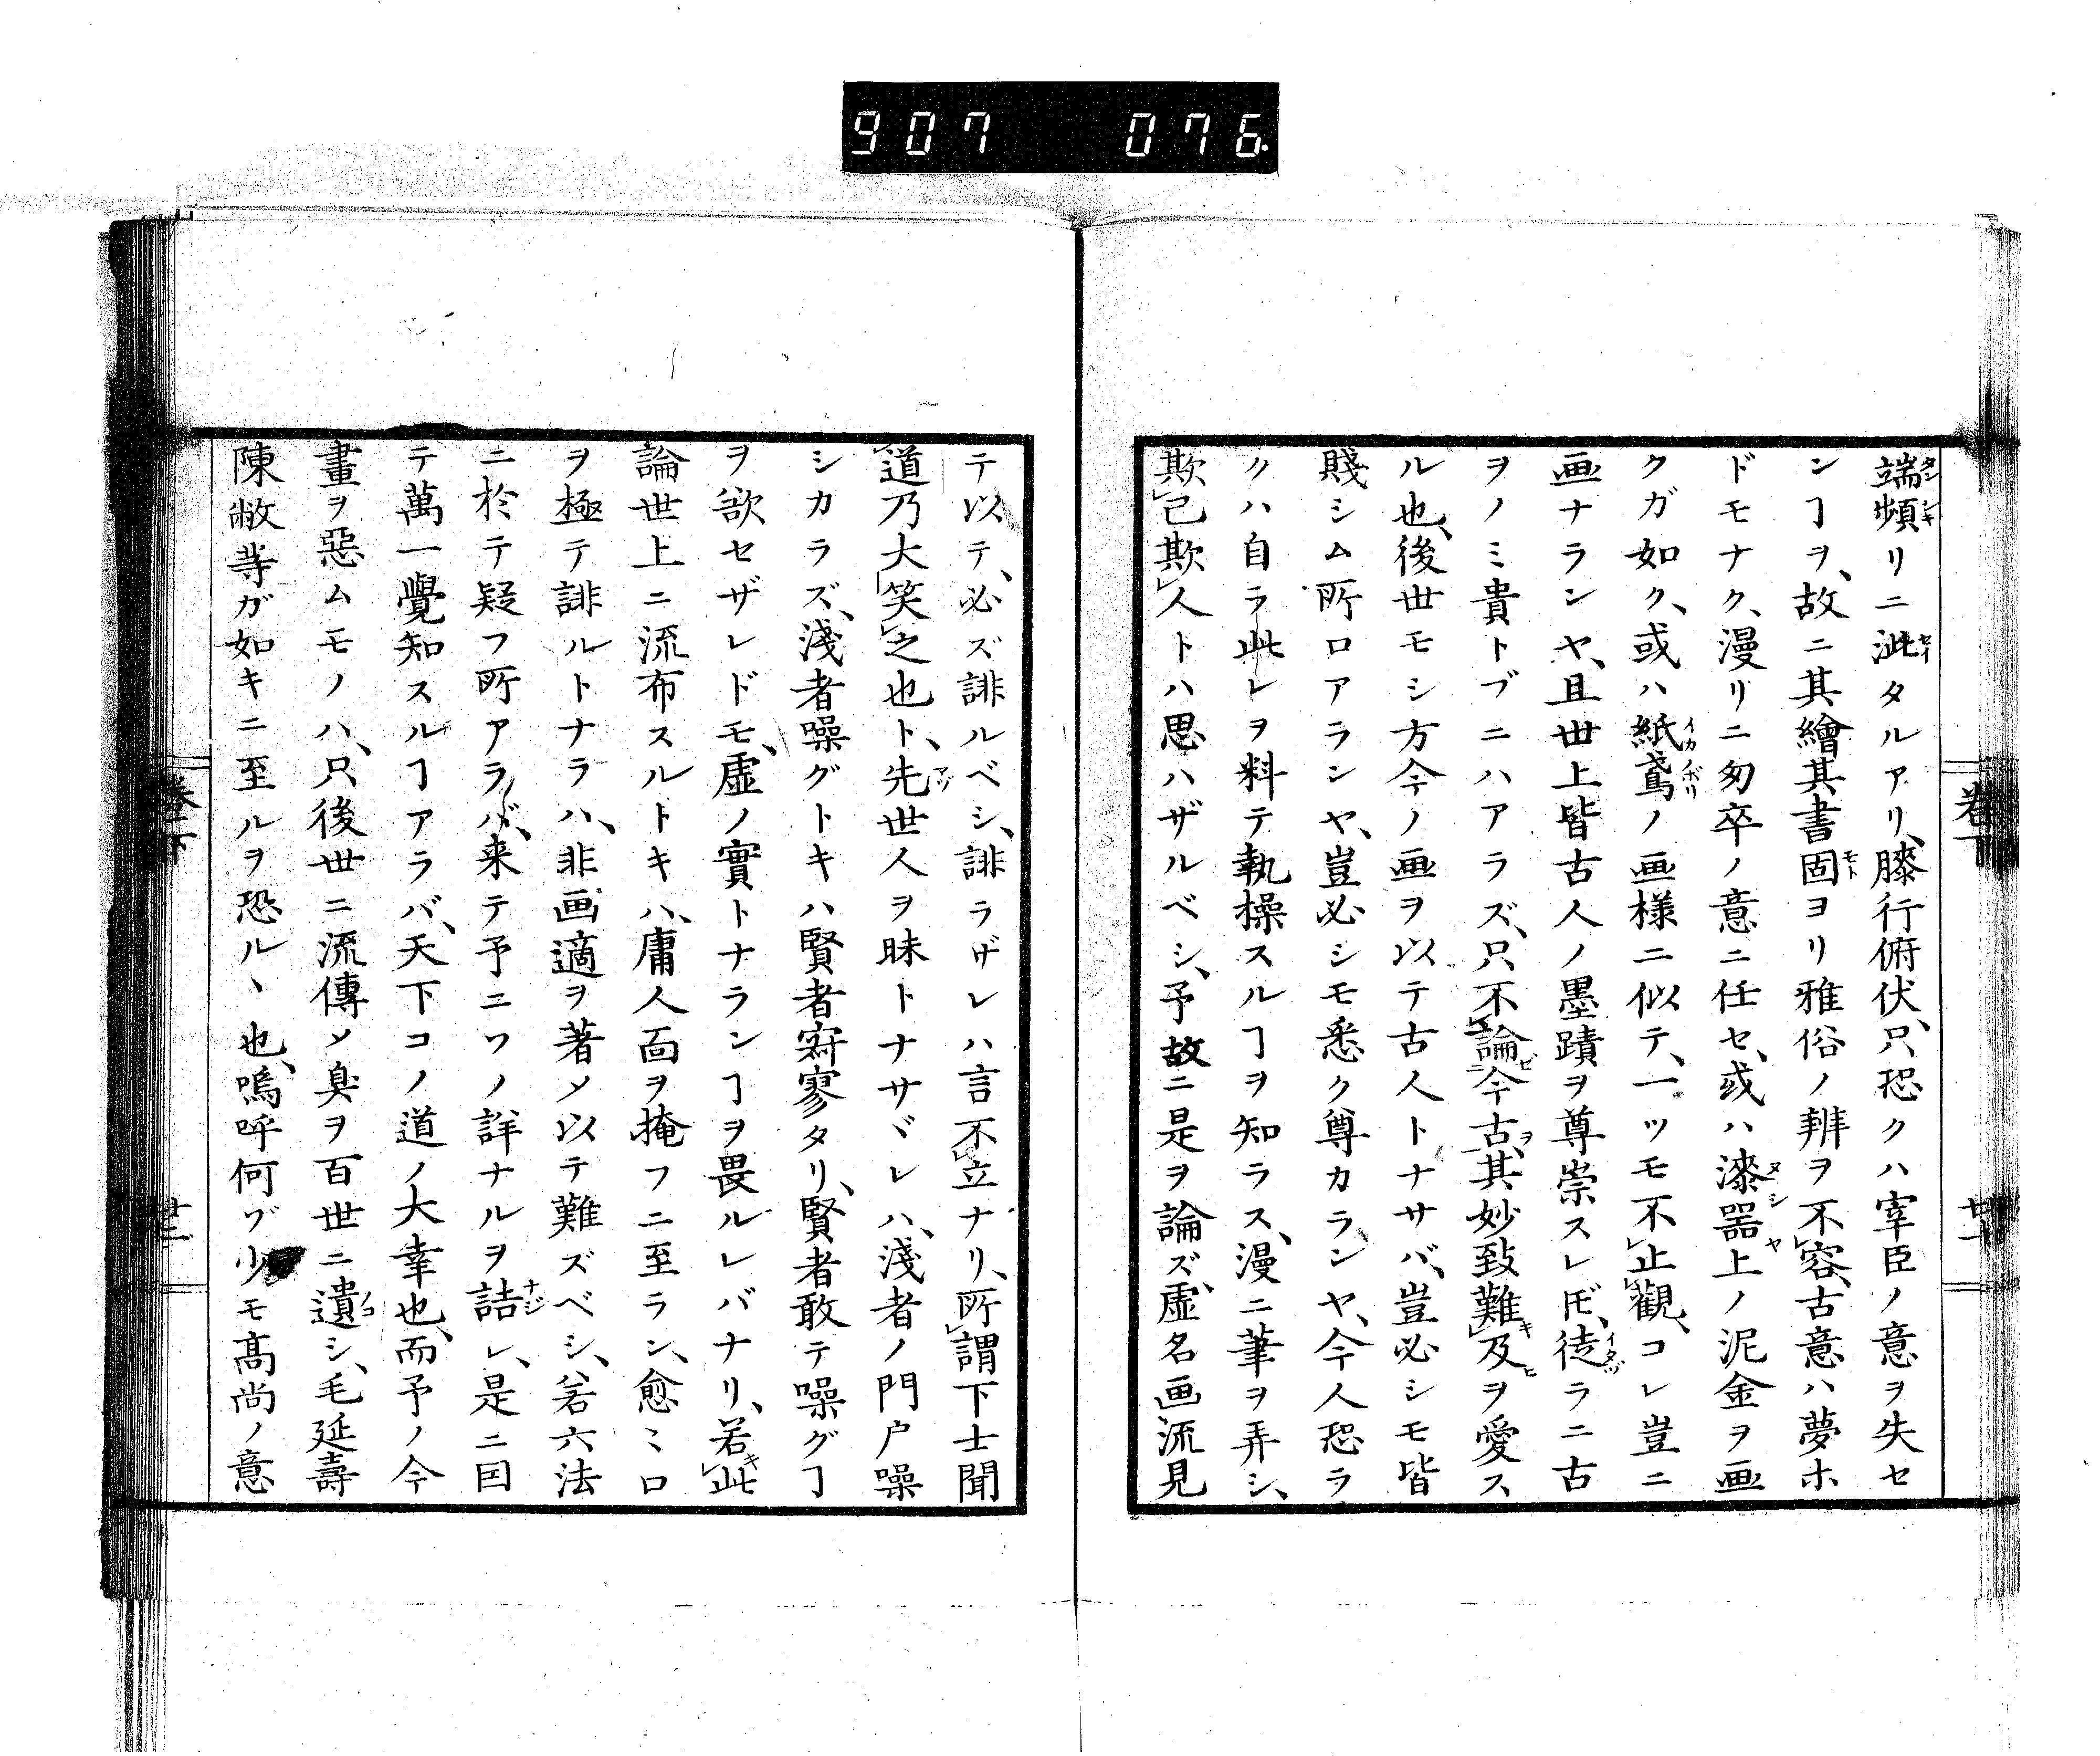 907 076
端頻リニ泚タルアリ、膝行俯伏、只恐クハ宰臣ノ意ヲ失セ
ンヿヲ、故ニ其繪其書固ヨリ雅俗ノ辨ヲ不容、古意ハ夢ホ
ドモナク、漫リニ匆卒ノ意ニ任セ、或ハ漆器上ノ泥金ヲ画
クガ如ク、或ハ紙鳶ノ画様ニ似テ、一ツモ不止觀、コレ豈ニ
画ナランヤ、且世上皆古人ノ墨蹟ヲ尊崇スレ𪜈、徒ラニ古
ヲノミ貴トブニハアラズ、只不論今古、其妙致難及ヲ愛ス
ル也、後世モシ方今ノ画ヲ以テ古人トナサバ、豈必シモ皆
賤シム所ロアランヤ、豈必シモ悉ク尊カランヤ、今人恐ラ
クハ自ラ此レヲ料テ執操スルヿヲ知ラス、漫ニ筆ヲ弄シ、
欺己欺人トハ思ハザルベシ、予故ニ是ヲ論ズ、虚名画流見
卷下
テ以テ、必ズ誹ルベシ、誹ラザレハ言不立ナリ、所謂下士聞
道乃大笑之也ト、先世人ヲ昧トナサヾレハ、淺者ノ門戸噪
シカラズ、淺者噪グトキハ賢者寂寥タリ、賢者敢テ噪グヿ
ヲ欲セザレドモ、虚ノ實トナランヿヲ畏ルレバナリ、若此
論世上ニ流布スルトキハ、庸人面ヲ掩フニ至ラン、愈ミロ
ヲ極テ誹ルトナラハ、非画適ヲ著メ以テ難ズベシ、若六法
ニ於テ疑フ所アラバ、来テ予ニワノ詳ナルヲ詰レ、是ニ因
テ萬一覺知スルヿアラバ、天下コノ道ノ大幸也、而予ノ今
畫ヲ惡ムモノハ、只後世ニ流傳メ臭ヲ百世ニ遺シ、毛延壽
陳敝等ガ如キニ至ルヲ恐ルヽ也、嗚呼何ゾ少モ髙尚ノ意
卷下